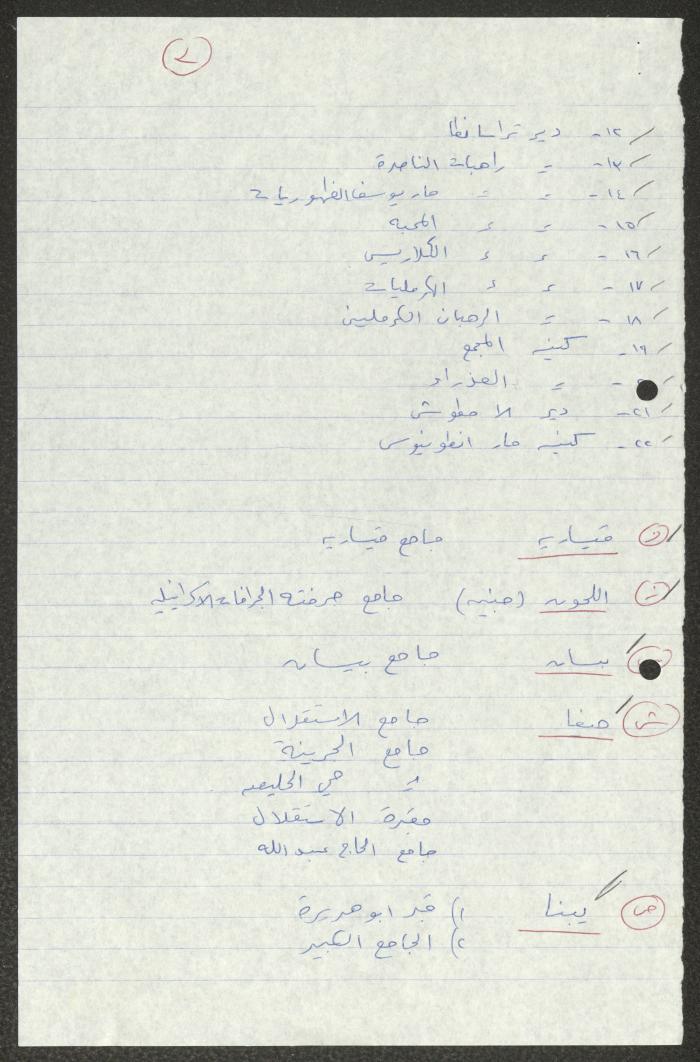 ١٢- دير تراسانطا
١٣- = راهبات الناصرة
١٤- = = مار يوسف الظهوريات
١٥- = = المحبه
١٦- = = الكلاريس
١٧- = = الكرمليات
١٨- = الرهبان الكرمليين
١٩- كنيسه المجمع
= العذراء
٢١- دير
٢٢- كنيسه مار انطونيوس
قيساريه جامع قيساريه
اللجون جامع جرفته الجرافات الاسرائيليه
بيسان جامع بيسان
ش حيفا جامع الاستقلال
جامع الجرينة
= حي الحليصه
مقبرة الاستقلال
جامع الحاج عبد الله
ص يبنا ١) قبر ابو هريرة
٢) الجامع الكبير